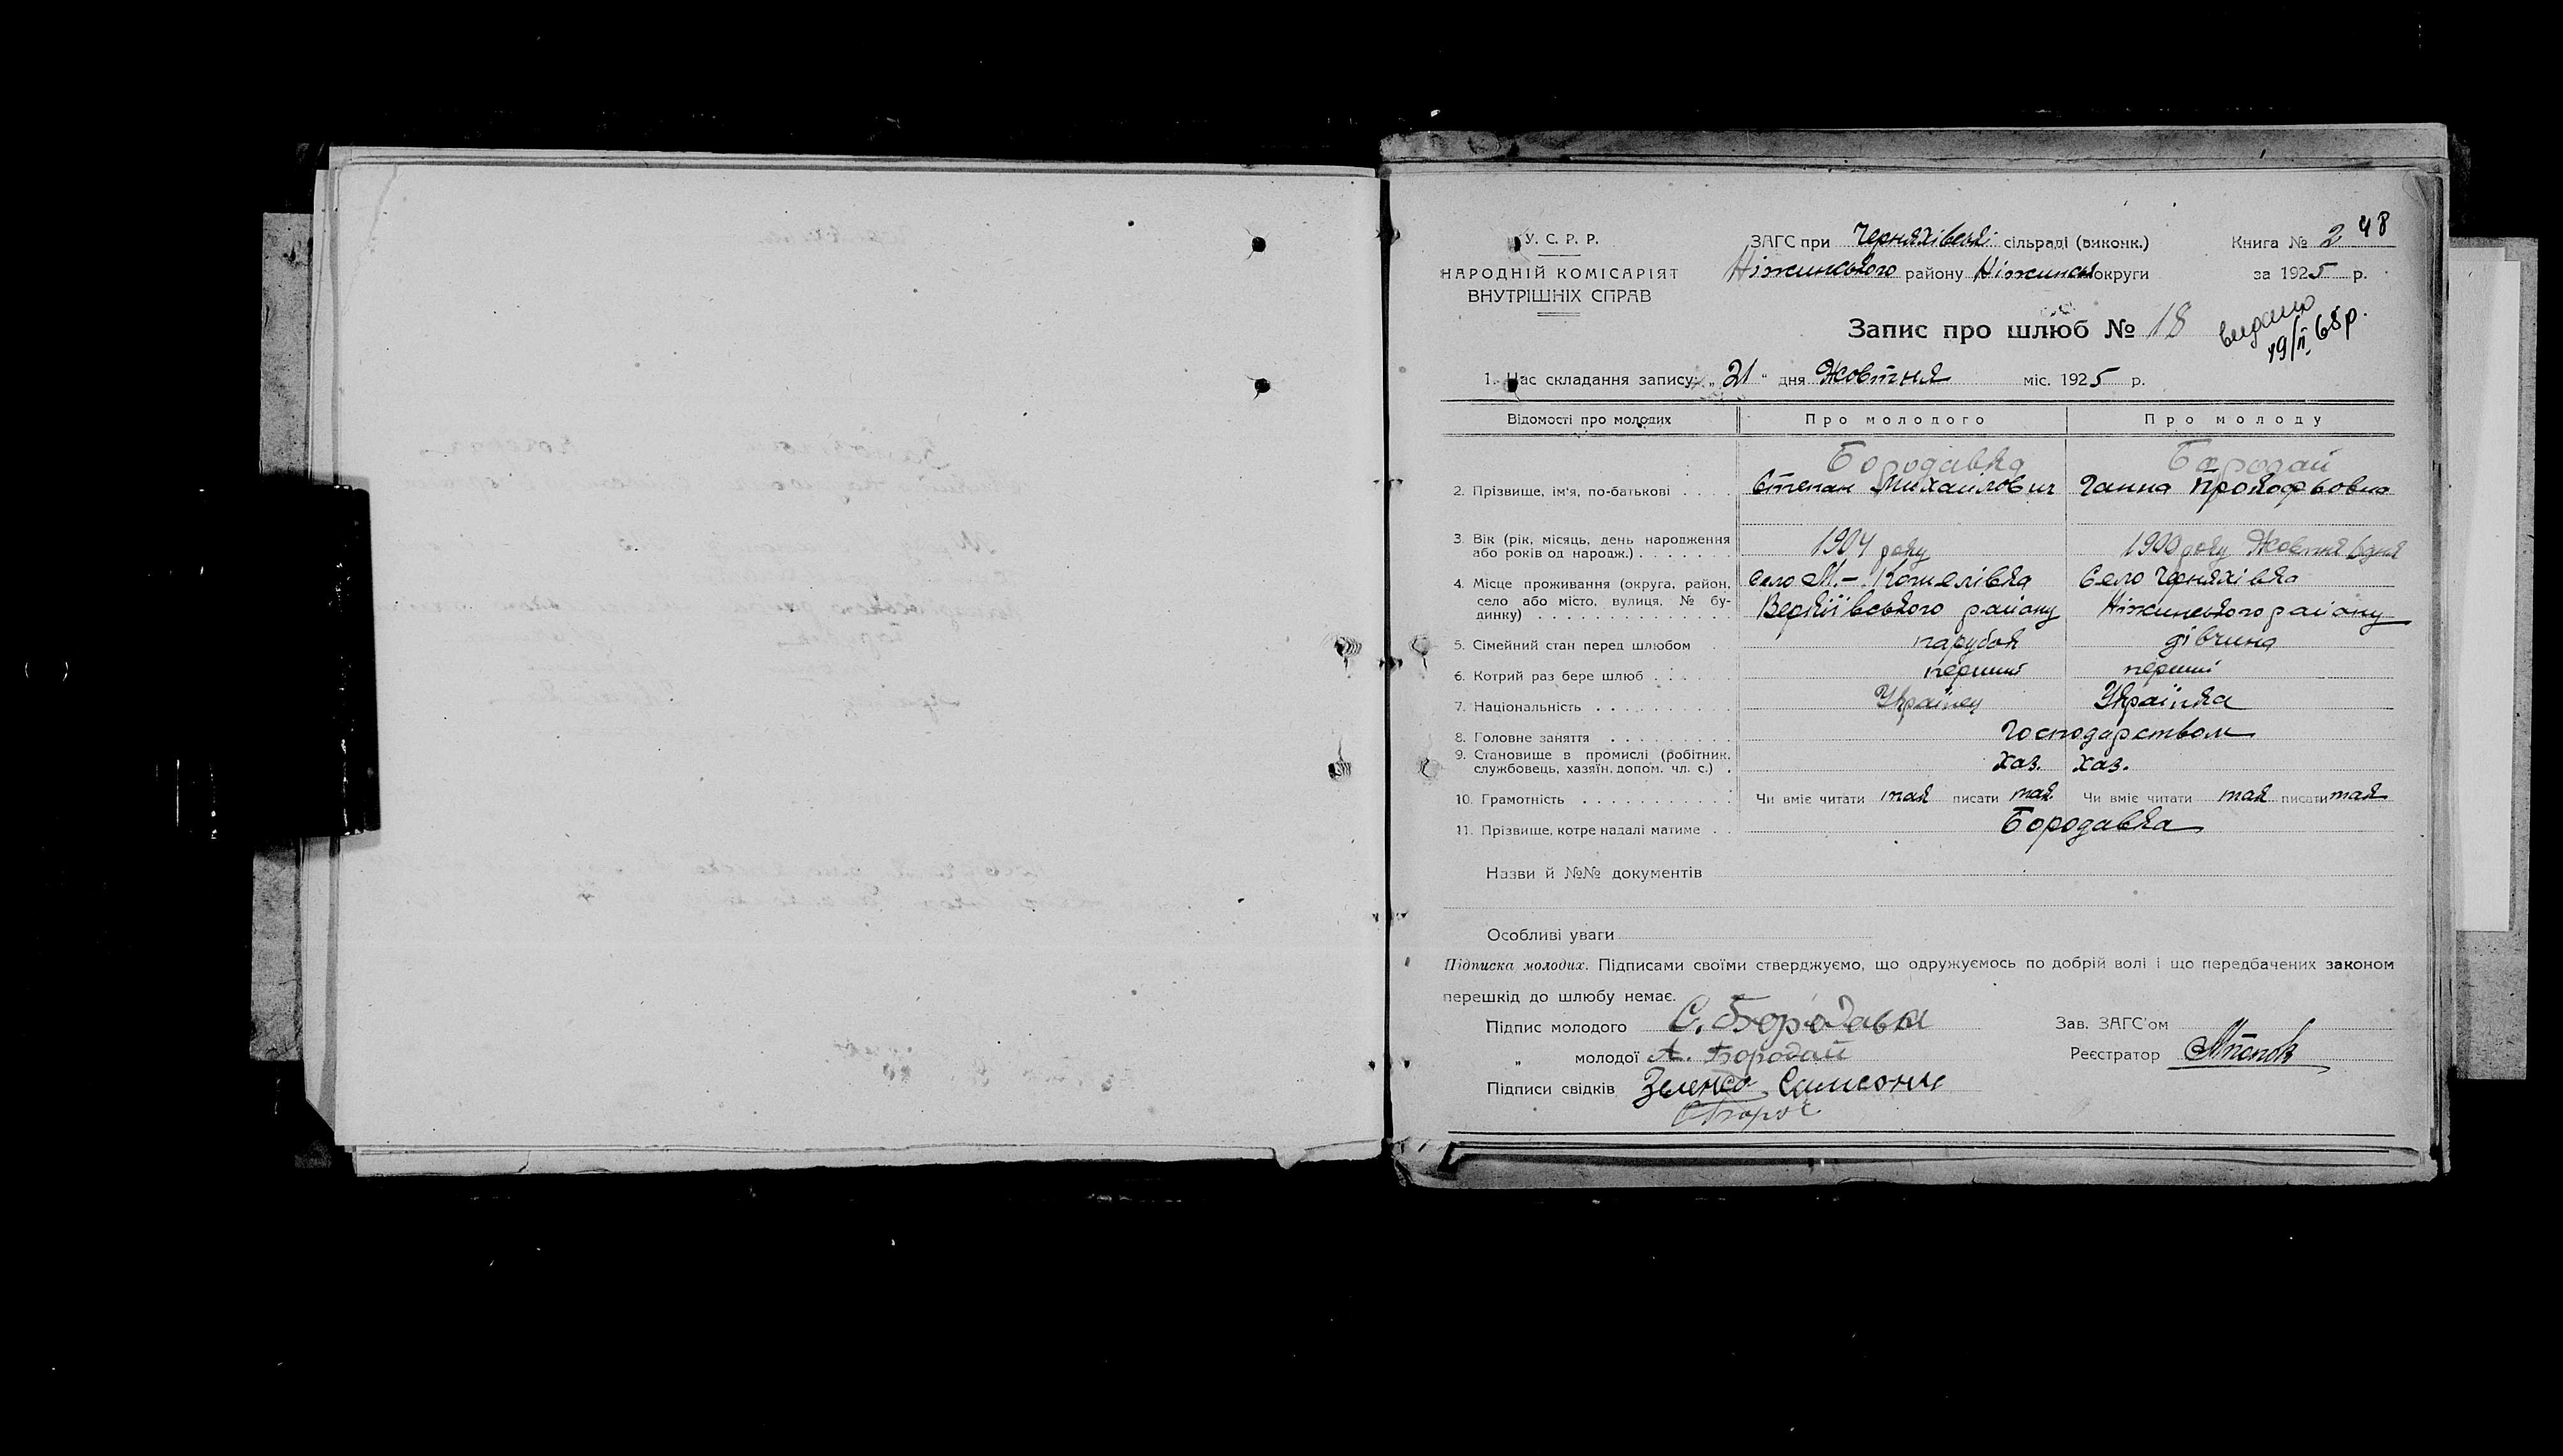 48
У. С. Р. Р.
НАРОДНІЙ КОМІСАРІЯТ
ВНУТРІШНІХ СПРАВ
ЗАГС при Черняхівскі сільраді (виконк.)
Ніжинського району Ніжинськ округи
Книга № 2
за 1925 р.
Запис про шлюб № 18
видано
19/II 68 р.
1. Час складання запису: „ 21 “ дня Жовтня міс. 1925 р.
Відомості про молодих Про молодого Про молоду
Бородавка Бородай
2. Прізвище, ім'я, по-батькові . . . . Степан Михайлович Ганна Прокофьовна
3. Вік (рік, місяць, день народження
або років од народж.) . . . . . . . 1904 року 1900 року Жовтня 6 дня
4. Місце проживання (округа, район, село М.- Кошелівка Село Черняхівка
село або місто, вулиця, № бу- Веркіївського району Ніжинського району
динку) . . . . . . . . . . . . . .
5. Сімейний стан перед шлюбом . парубок дівчина
6. Котрий раз бере шлюб . . . . . перший перший
7. Національність . . . . . . . . . . Українец Українка
8. Головне заняття . . . . . . . . . Господарством
9. Становище в промислі (робітник,
службовець, хазяїн, допом. чл. с.) . хаз. хаз.
10. Грамотність . . . . . . . . . . . Чи вміє читати так писати так Чи вміє читати так писати так
11. Прізвище, котре надалі матиме . . Бородавка
Назви й №№ документів
Особливі уваги
Підписка молодих. Підписами своїми стверджуємо, що одружуємось по добрій волі і що передбачених законом
перешкід до шлюбу немає.
Підпис молодого С. Бородавка Зав. ЗАГС'ом
„ молодої А. Бородай Реєстратор
Підписи свідків